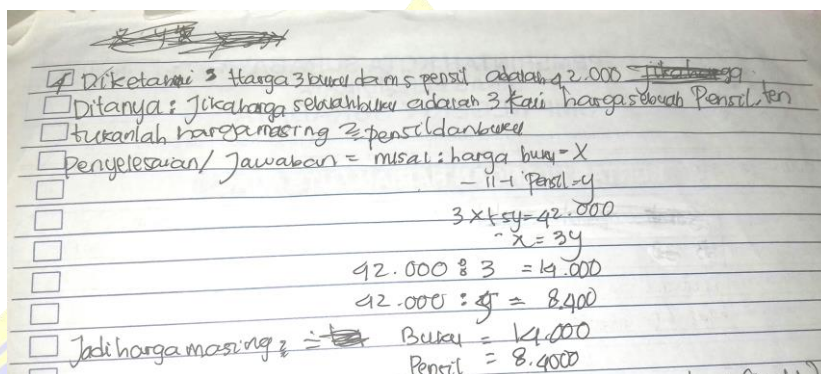 4 Diketahui : Harga 3 buku dam 5 pensil adalah 42.000
Ditanya : Jika harga sebuah buku adalah 3 kali harga sebuah Pensil, ten
tukanlah harga masing 2 pensil dan buku
Penyelesaian / Jawaban = misal : harga buku = X
- 11 - 1 Pensil = y
3x + 5y = 42.000
- x = 3y
42.000 : 3 = 14.000
42.000 : 5 = 8.400
Jadi harga masing 2 = Buku = 14.000
Pensil = 8.4000